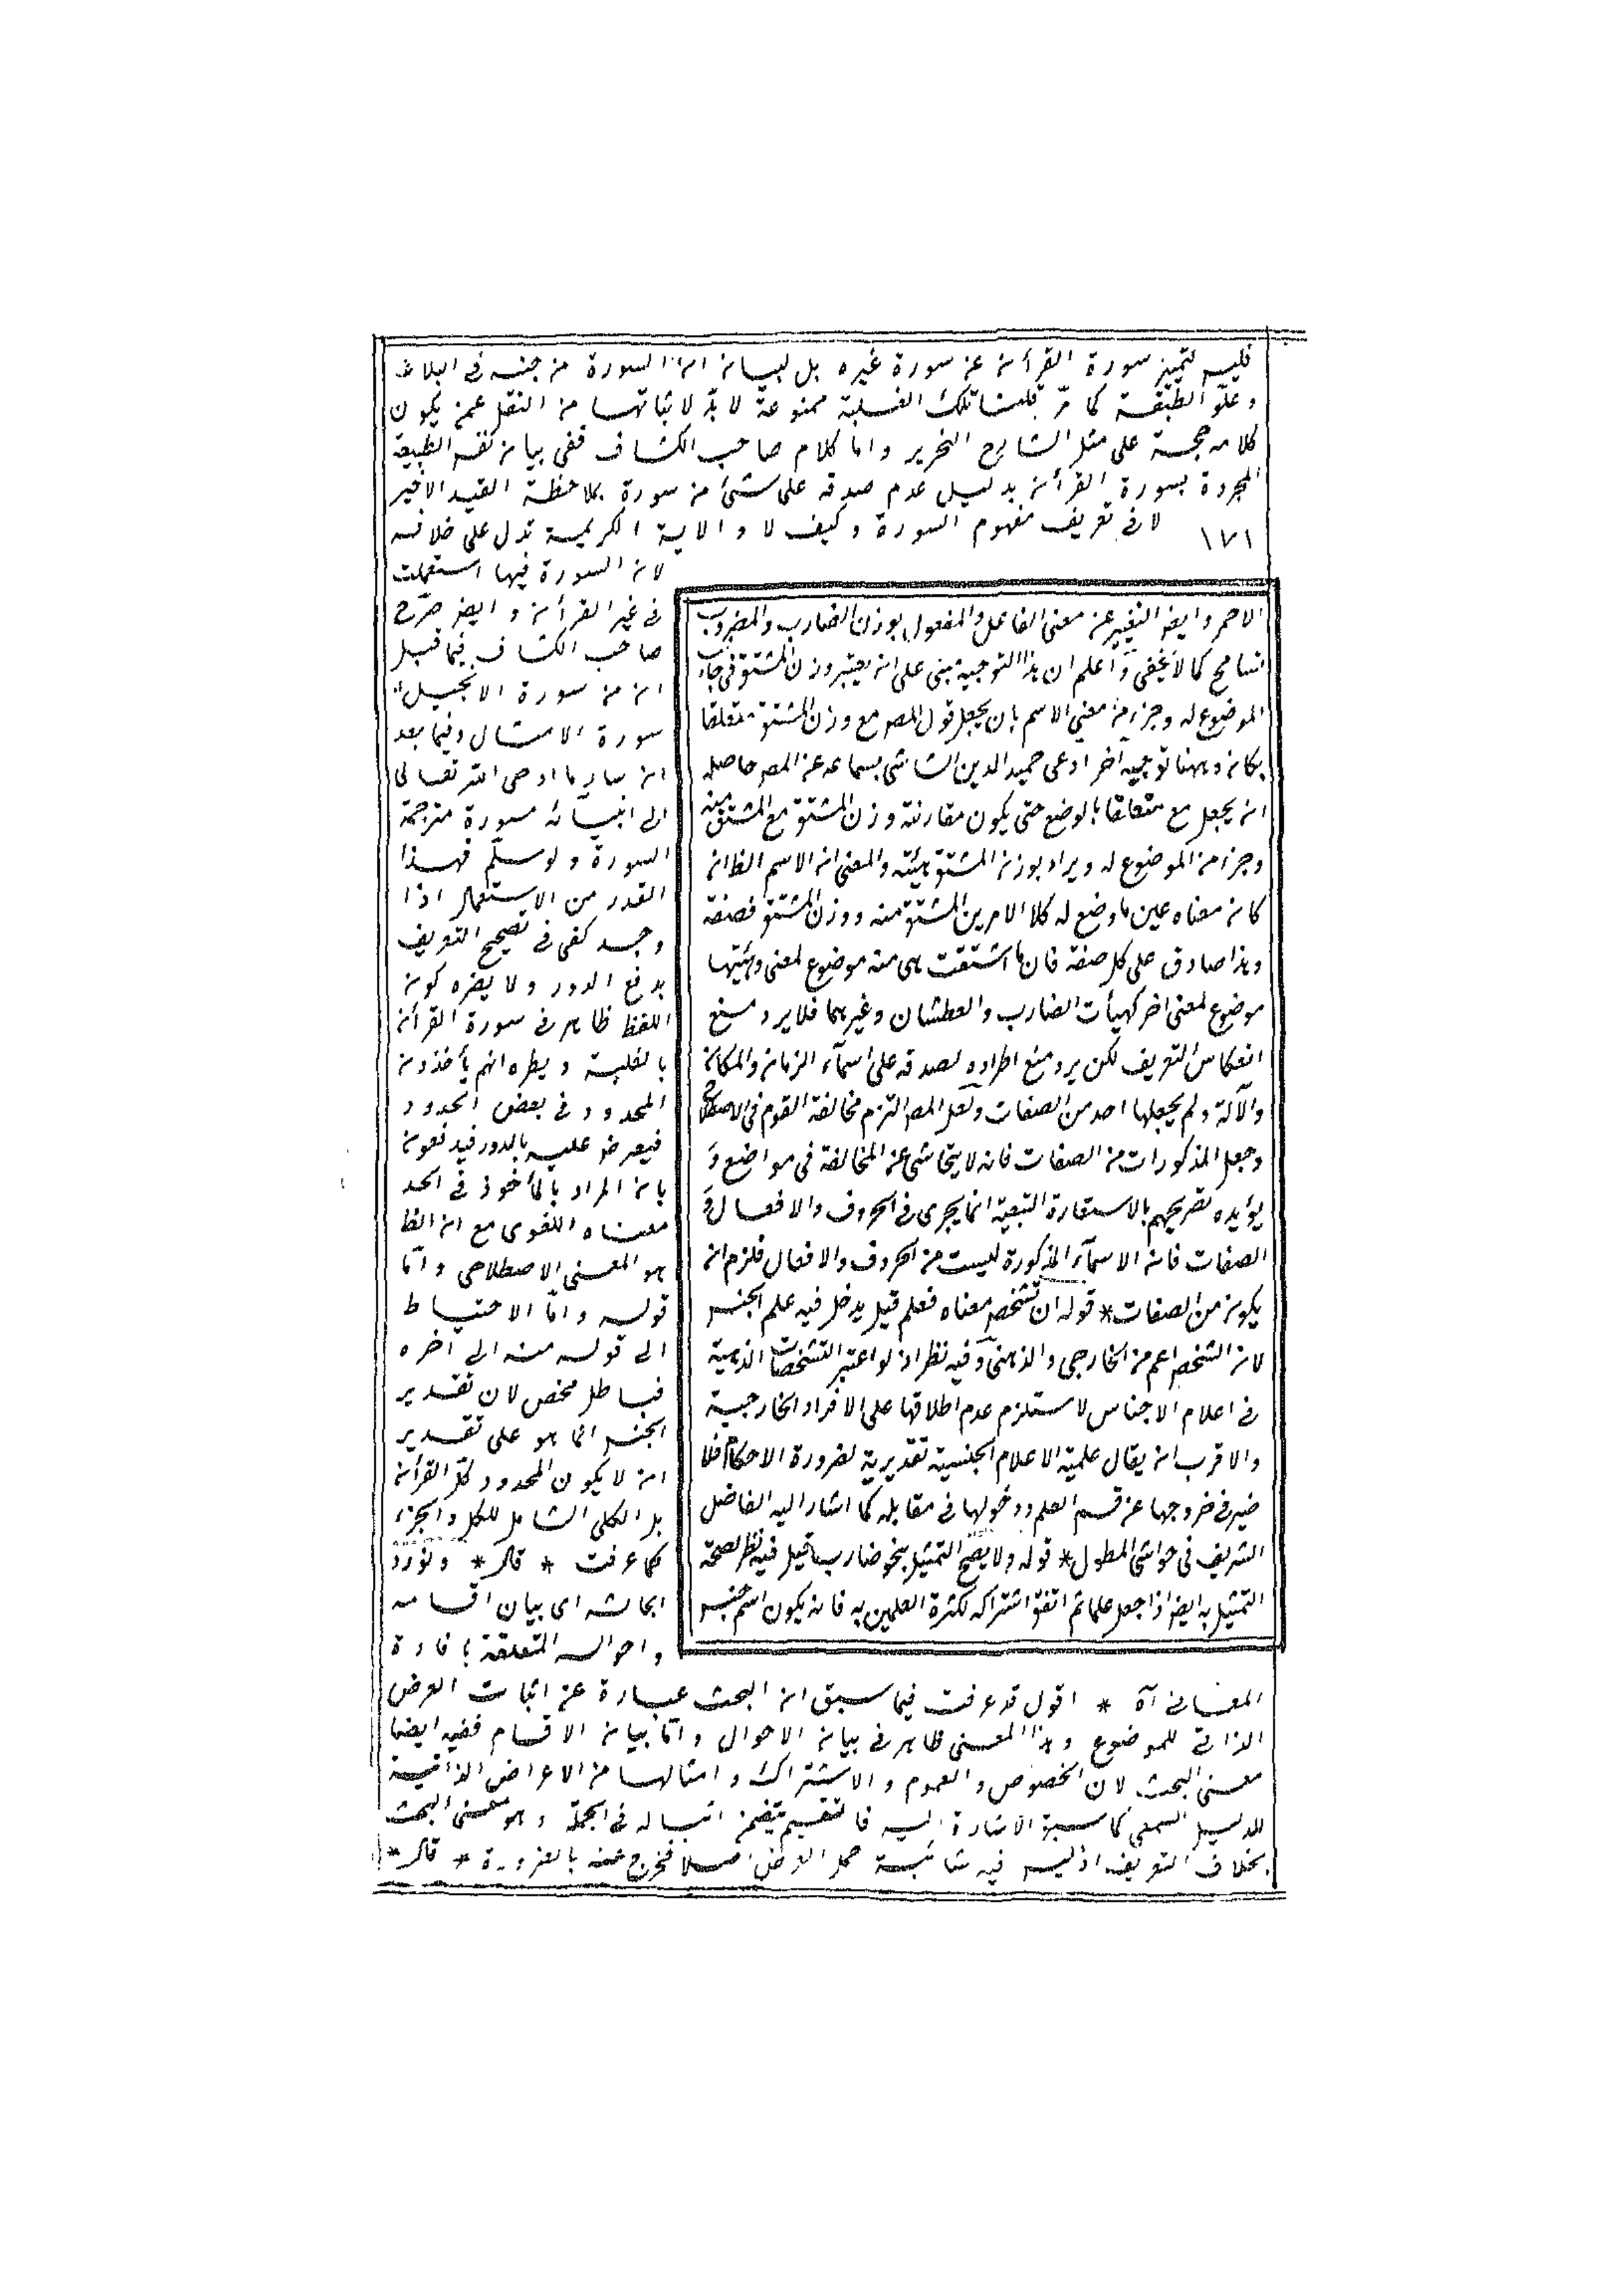 فليس لتميز سورة القرأن عن سورة غيره بل لبيان ان السورة من جنسه فى البلاغة
وعلوّ الطبقة كما مرّ قلنا تلك الغلبة ممنوعة لا بدّ لاثباتها من النقل عمن يكون
كلامه حجة على مثل الشارح النحرير واما كلام صاحب الكشاف ففى بيان نفس الطبيعة
المجردة بسورة القرأن بدليل عدم صدقه على شئ من سورة بملاحظة القيد الاخير
١٧١ لا فى تعريف مفهوم السورة وكيف لا والاية الكريمة تدل على خلافه
لان السورة فيها استعملت
فى غير القرأن وايضا صرّح
صاحب الكشاف فيما قبل
ان من سورة الانجيل
سورة الامثال وفيما بعد
ان سائر ما اوحى الله تعالى
الى انبيائه مسورة مترجمة
السورة ولو سلّم فهذا
القدر من الاستعمال اذا
وجد كفى فى تصحيح التعريف
بدفع الدور ولا يضره كون
اللفظ ظاهر فى سورة القرأن
بالغلبة ونظيره انهم يأخذون
المحدود فى بعض الحدود
فيعرض عليه بالدور فيدفعون
بان المراد بالمأخوذ فى الحد
معناه اللغوى مع ان الظ
هو المعنى الاصطلاحى وامّا
قوله وامّا الاحتياط
الى قوله منه الى اخره
فباطل محض لان تقدير
الجنس انما هو على تقدير
ان لا يكون المحدود كلّ القرأن
بل الكلى الشامل للكل والجزء
كما عرفت * قال * ونورد
ابحاثه اى بيان اقسامه
واحواله المتعلقة بافادة
المعانى آه * اقول قد عرفت فيما سبق ان البحث عبارة عن اثبات العرض
الذاتى للموضوع وهذا المعنى ظاهر فى بيان الاحوال وامّا بيان الاقسام ففيه ايضا
معنى البحث لان الخصوص والعموم والاشتراك وامثالها من الاعراض الذاتية
للدليل السمعى كما سبق الاشارة اليه فالتقسيم يتضمن اثباته له فى الجملة وهو معنى البحث
بخلاف التعريف اذ ليس فيه شائبة حمل العرض اصلا فخرج عنه بالضرورة * قال *
الاحمر وايضا التغيير عن معنى الفاعل والمفعول بوزن الضارب والمضروب
تسامح كما لا يخفى واعلم ان هذا التوجيه مبنى على ان يعتبر وزن المشتق فى جانب
الموضوع له وجزء من معنى الاسم بان يجعل قول المص مع وزن المشتق متعلقا
بكان وههنا توجيه آخر ادعى حميد الدين الشاشى بسماعه عن المص حاصله
ان يجعل مع متعلقا بالوضع حتى يكون مقارنة وزن المشتق مع المشتق منه
وجزء من الموضوع له ويراد بوزن المشتق هيئته والمعنى ان الاسم الظ ان
كان معناه عين ما وضع له كلا الامرين المشتق منه ووزن المشتق فصفة
وهذا صادق على كل صفة فان ما اشتقت هى منه موضوع لمعنى وهيئتها
موضوع لمعنى اخر كهيأت الضارب والعطشان وغيرهما فلا يرد منع
انعكاس التعريف لكن يرد منع اطراده لصدقه على اسماء الزمان والمكان
والآلة ولم يجعلها احد من الصفات ولعل المص التزم مخالفة القوم فى الاصطلاح
وجعل المذكورات من الصفات فانه لا يتحاشى عن المخالفة فى مواضع و
يؤيده تصريحهم بالاستعارة التبعية انما يجرى فى الحروف والافعال و
الصفات فان الاسماء المذكورة ليست من الحروف والافعال فلزم ان
يكون من الصفات * قوله ان تشخص معناه فعلم قيل يدخل فيه علم الجنس
لان التشخص اعم من الخارجى والذهنى وفيه نظر اذ لو اعتبر التشخصات الذهنية
فى اعلام الاجناس لاستلزم عدم اطلاقها على الافراد الخارجية
والاقرب ان يقال علمية الاعلام الجنسية تقديرية لضرورة الاحكام فلا
ضير فى خروجها عن قسم العلم ودخولها فى مقابله كما اشار اليه الفاضل
الشريف فى حواشى المطول * قوله ولا يصح التمثيل بنحو ضارب قيل فيه نظر لصحة
التمثيل به ايضا اذا جعل علما ثم اتفق اشتراكه لكثرة العلمين به فانه يكون اسم جنس